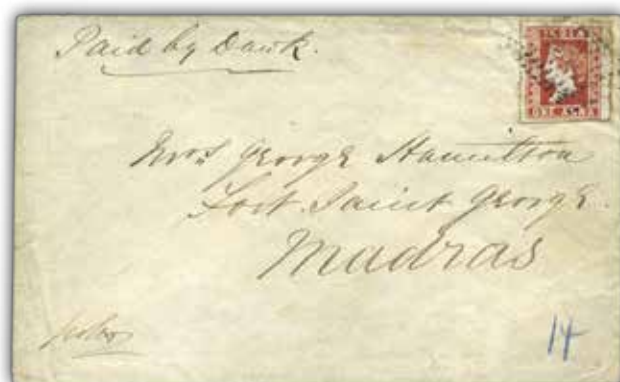 Paid by Dawk.
INDIA
ONE ANNA
Mrs George Hamilton
Fort Saint George.
Madras
14